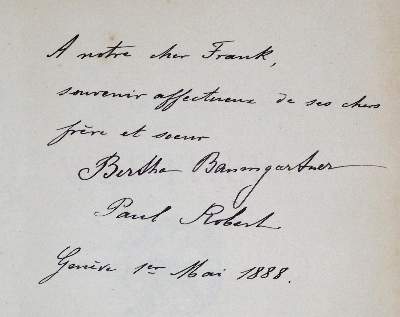 A notre cher Frank,
souvenir affectueux de ses chers
frère et soeur
Bertha Baumgartner
Paul Robert
Genève 1er Mai 1888.